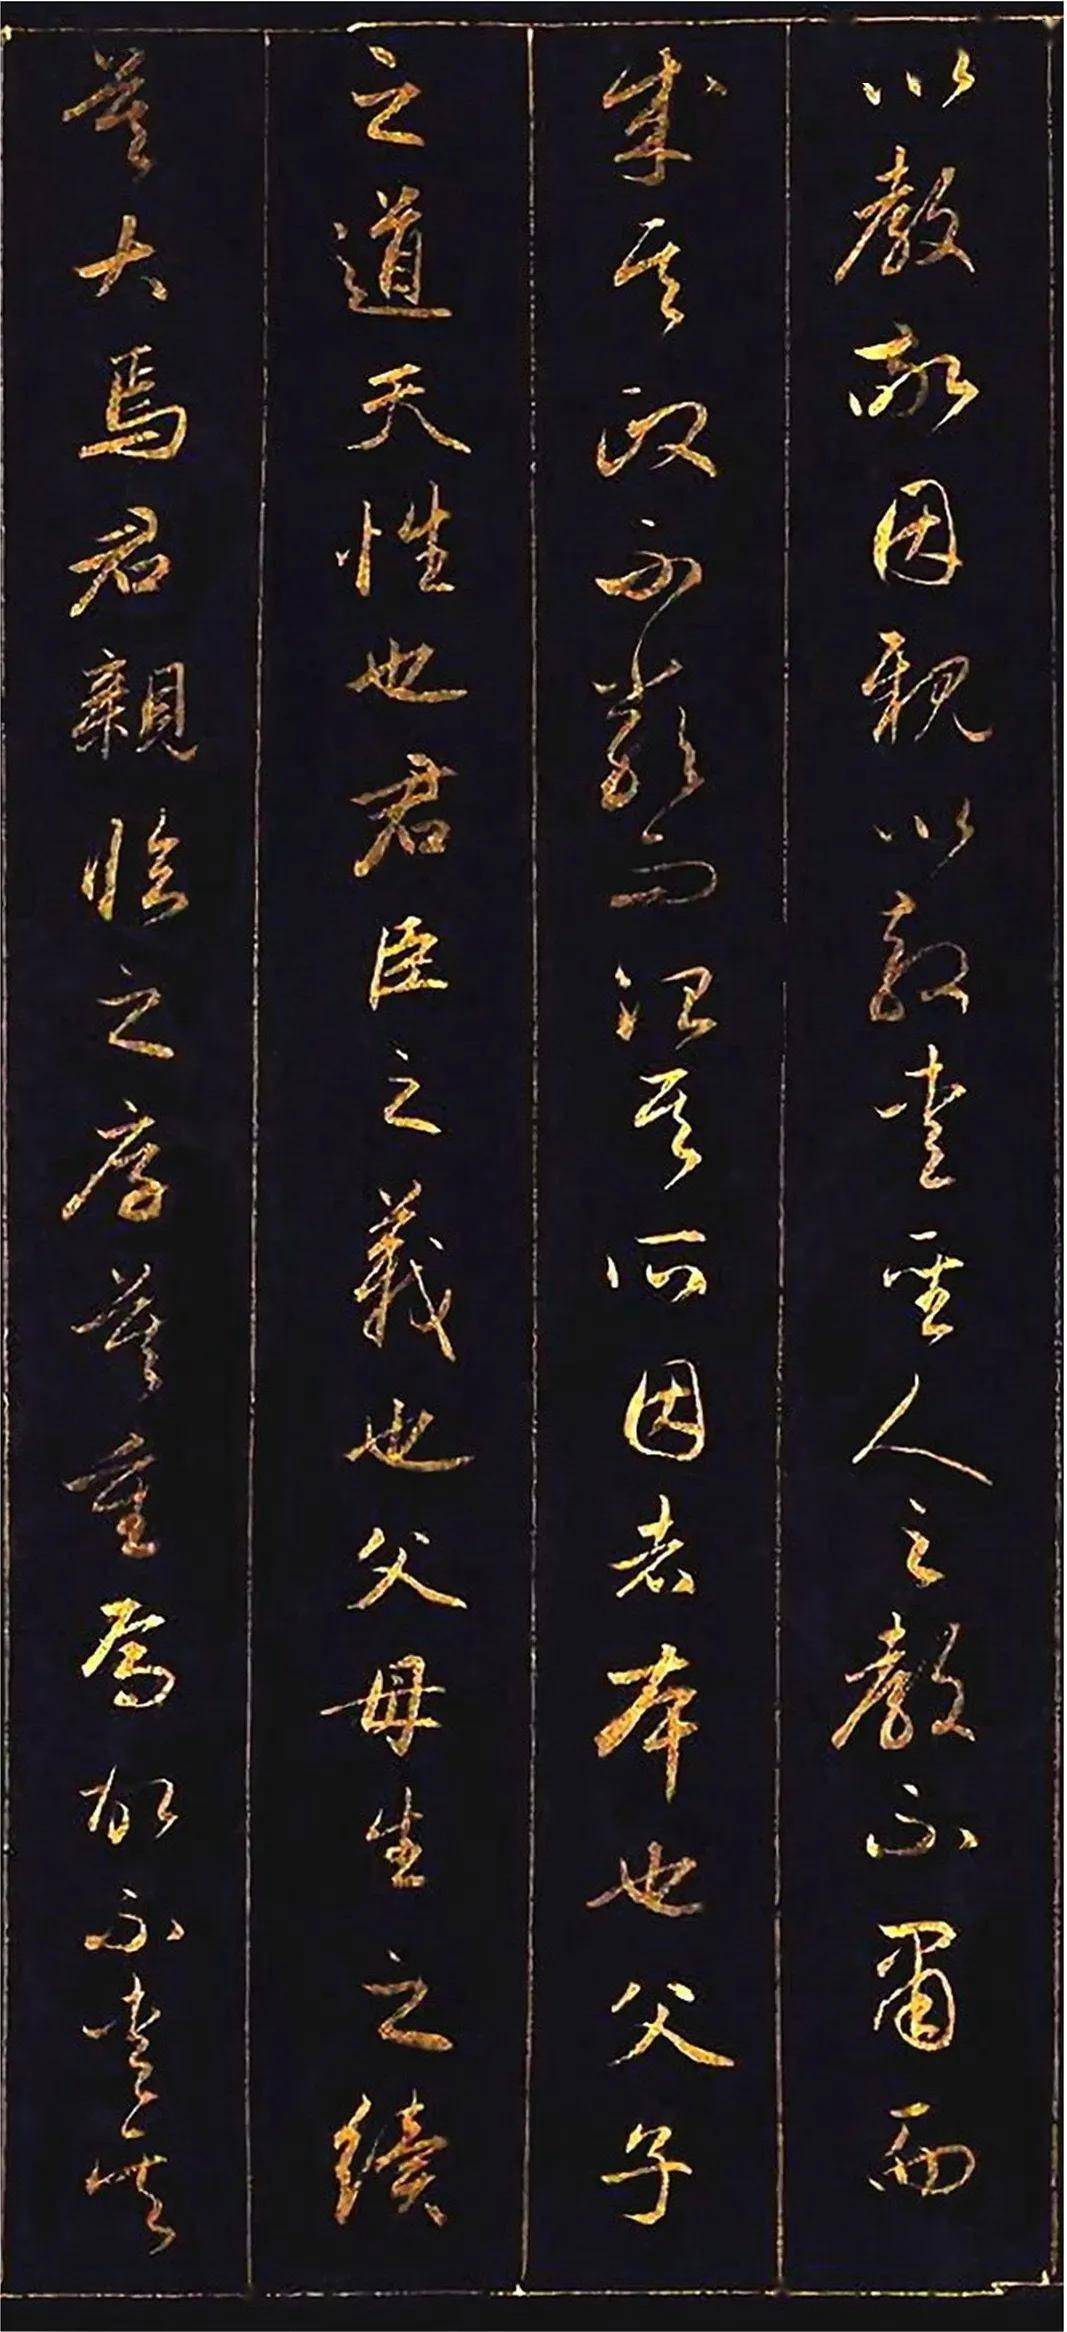 以教敬因親以教愛聖人之教不肅而
成其政不嚴而治其所因者本也父子
之道天性也君臣之義也父母生之續
莫大焉君親臨之厚莫重焉故不愛其